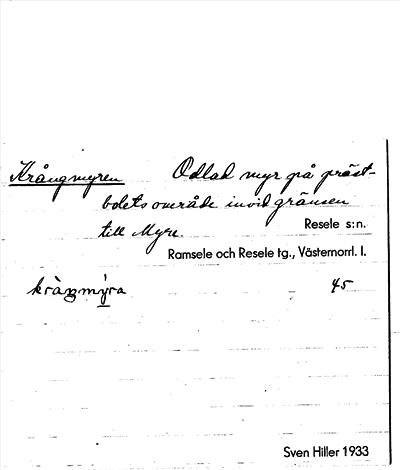 Krångmyren Odlad myr på präst-
bolets område invid gränsen
till Myre.
Resele s:n.
Ramsele och Resele tg., Västernorrl. l.
45
Sven Hiller 1933